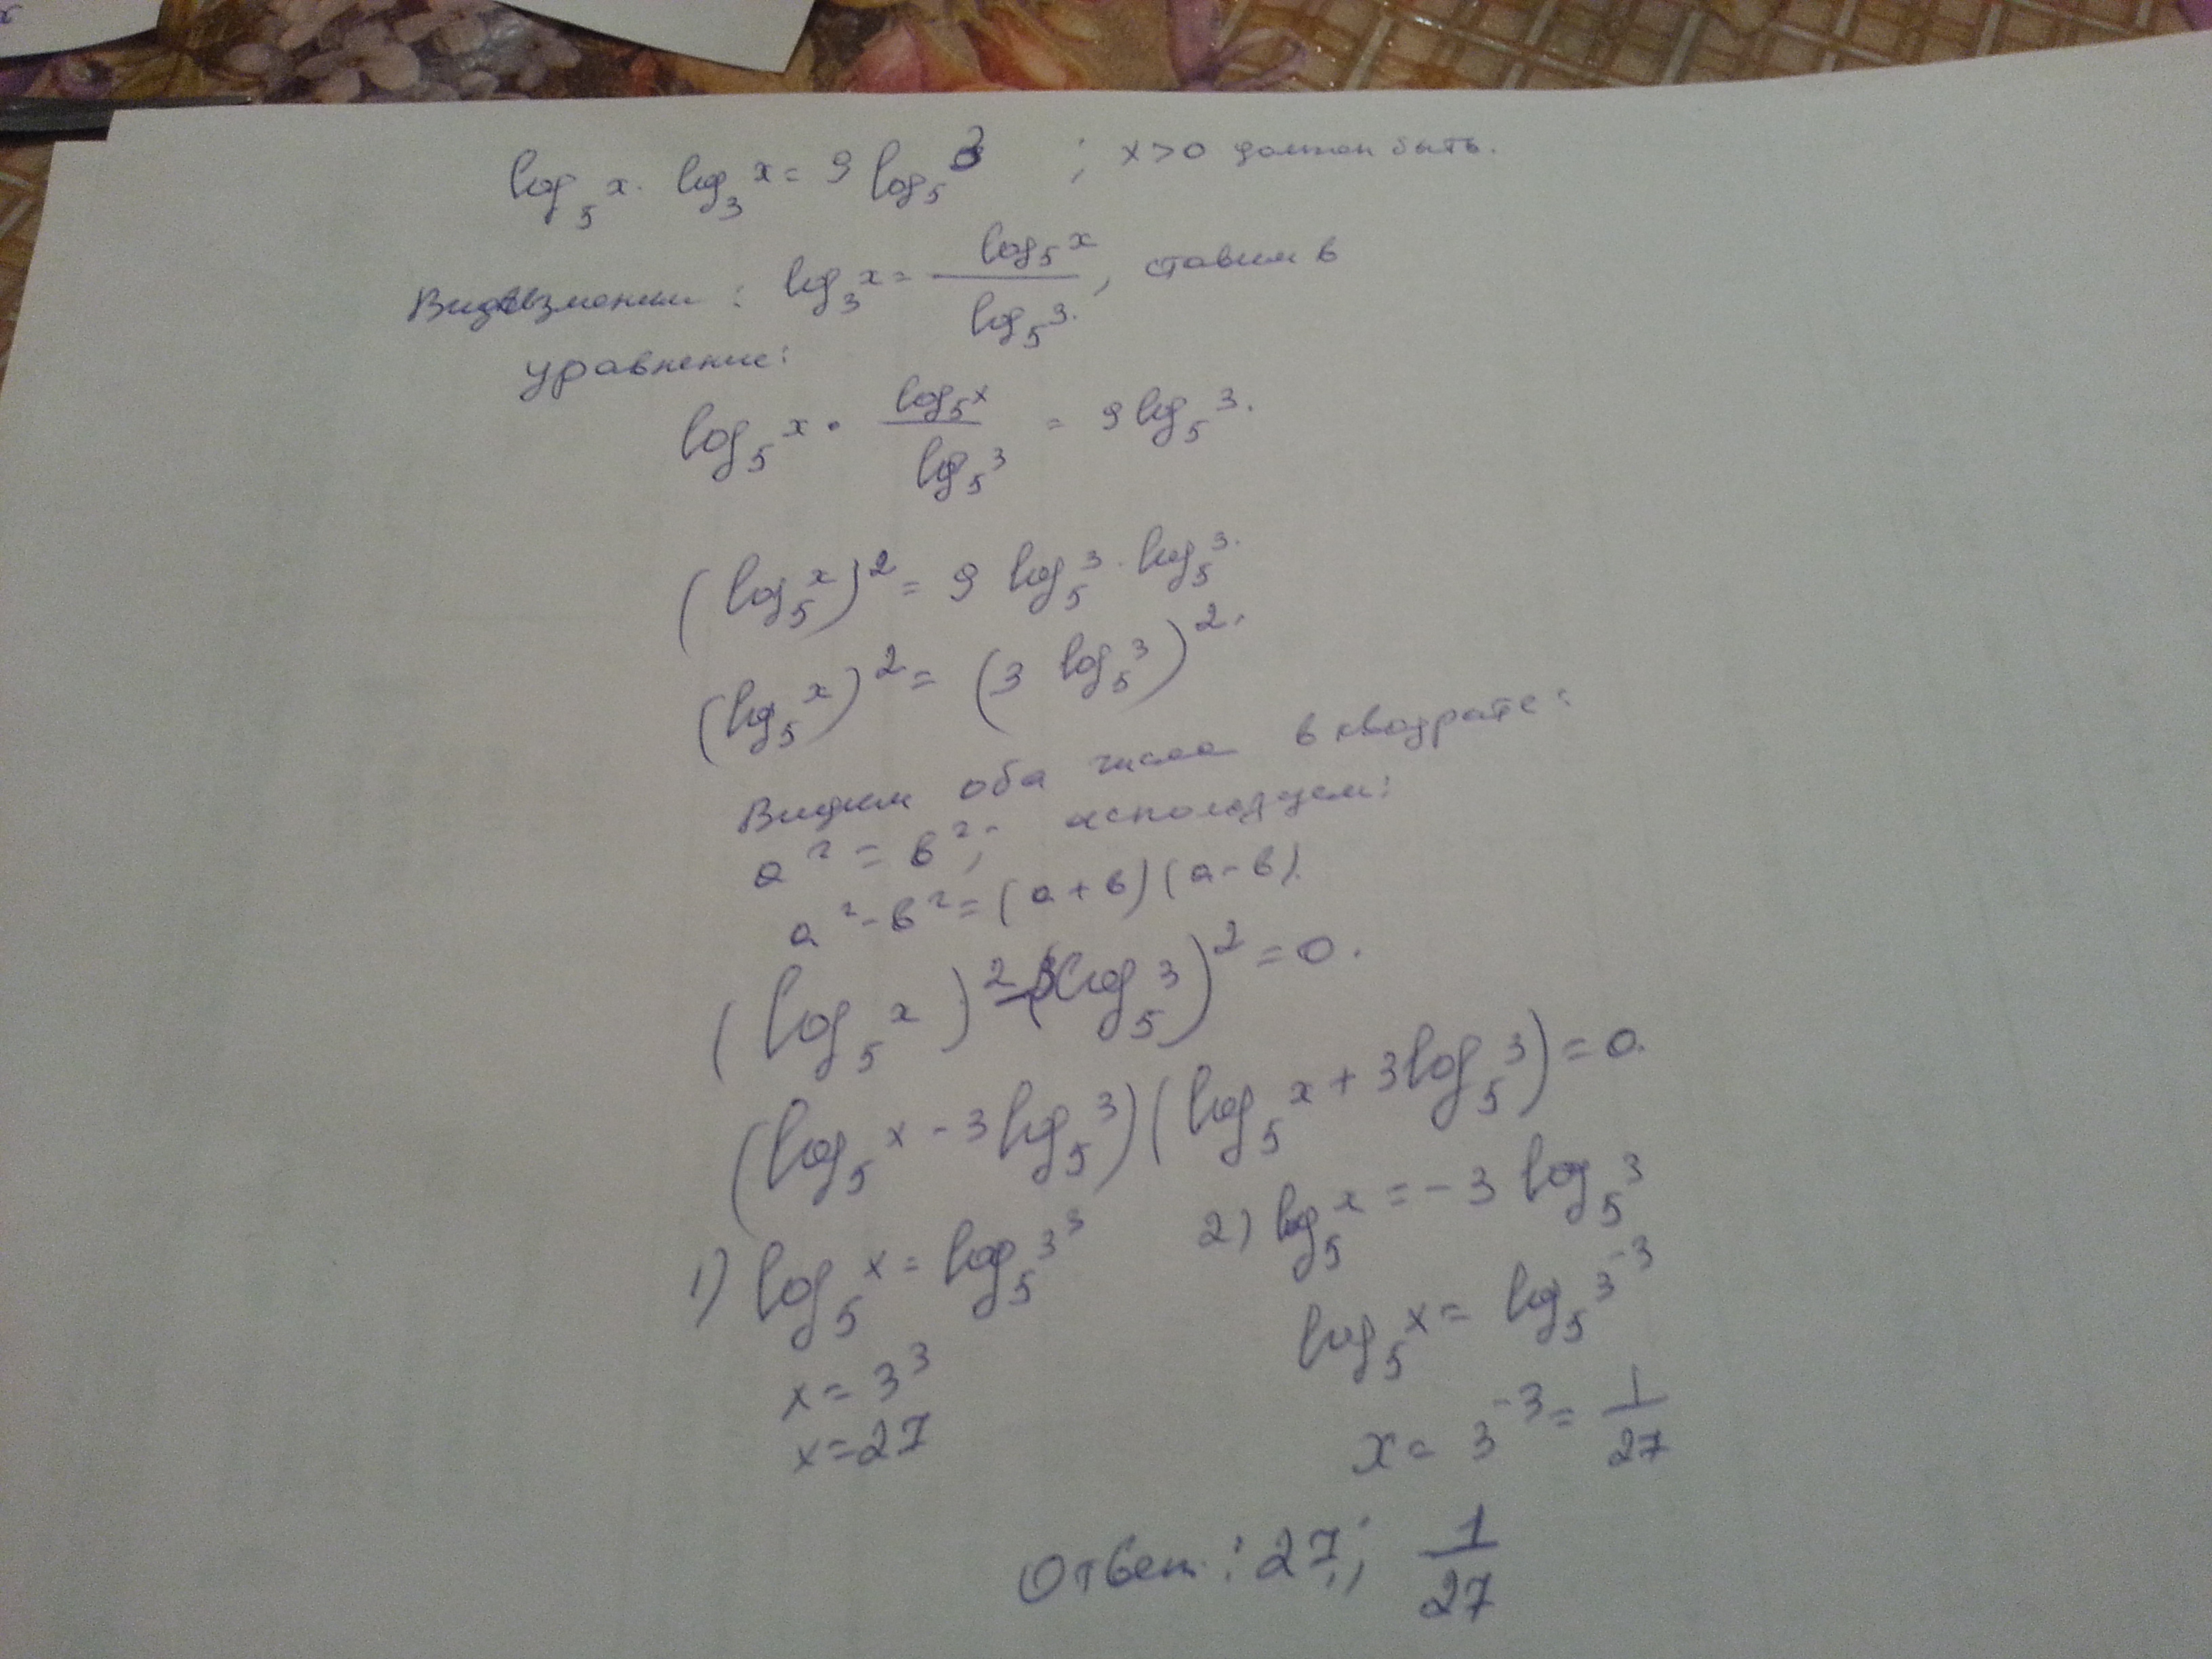 log₅x · log₃x = 9 log₅3 ; x>0 должен быть.
Видоизменим : log₃x = log₅x / log₅3 , ставим в
уравнение:
log₅x · log₅x / log₅3 = 9 log₅3.
(log₅x)² = 9 log₅3 · log₅3.
(log₅x)² = (3 log₅3)².
Видим оба числа в квадрате:
a² = в²; используем:
a² - в² = (a + в)(a - в).
(log₅x)² - (3log₅3)² = 0.
(log₅x - 3log₅3)(log₅x + 3log₅3) = 0.
1) log₅x = log₅3³
x = 3³
x = 27
2) log₅x = -3 log₅3
log₅x = log₅3⁻³
x = 3⁻³ = 1/27
Ответ : 27; 1/27